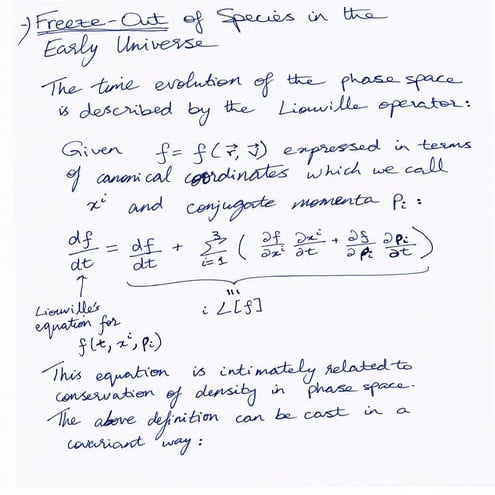 →) Freeze-Out of Species in the
Early Universe
The time evolution of the phase space
is described by the Liouville operator:
Given f = f(r⃗, v⃗) expressed in terms
of canonical coordinates which we call
xⁱ and conjugate momenta pᵢ :
df/dt = df/dt + Σ_{i=1}^{3} ( ∂f/∂xⁱ ∂xⁱ/∂t + ∂f/∂pᵢ ∂pᵢ/∂t )
↑
Liouville's
equation for
f(t, xⁱ, pᵢ)
i L[f]
This equation is intimately related to
conservation of density in phase space.
The above definition can be cast in a
covariant way :